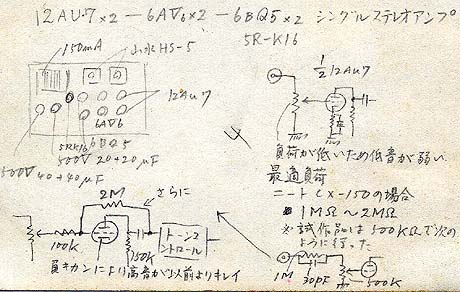 12AU7×2－6AV6×2－6BQ5×2 シングルステレオアンプ
5R-K16
150mA
山水HS-5
12AU7
6AV6
6BQ5
5RK16
500V 20+20μF
500V
40+40μF
1/2 12AU7
負荷が低いため低音が弱い
最適負荷
ニートCX-150の場合
1MΩ～2MΩ
※試作品は500KΩで次の
ように行った
1M
30PF
500K
2M
さらに
100K
250K
トーンコントロール
負キカンにより高音が以前よりキレイ